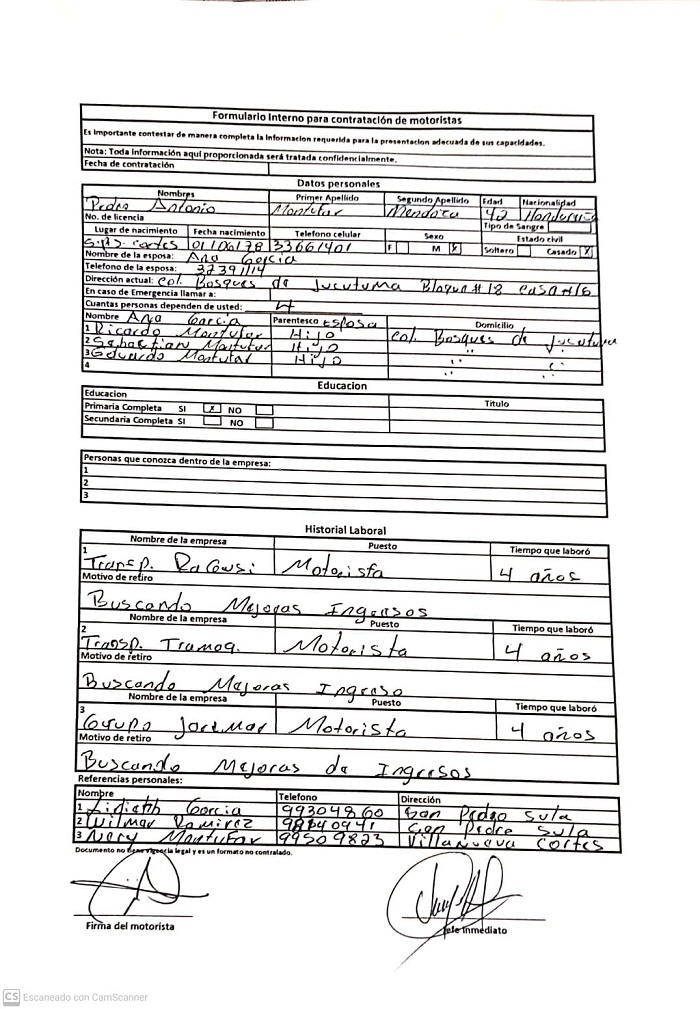 Formulario Interno para contratación de motoristas
Es importante contestar de manera completa la informacion requerida para la presentacion adecuada de sus capacidades.
Nota: Toda información aquí proporcionada será tratada confidencialmente.
Fecha de contratación
Datos personales
Nombres Primer Apellido Segundo Apellido Edad Nacionalidad
Pedro Antonio Montufar Mendoza 42 Hondureña
No. de licencia Tipo de Sangre
Lugar de nacimiento Fecha nacimiento Telefono celular Sexo Estado civil
S.P.S. Cortes 01/06/78 33661401 F M X Soltero Casado X
Nombre de la esposa: Ana Garcia
Telefono de la esposa: 32391114
Dirección actual: Col. Bosques de Jucutuma Bloque #18 Casa #16
En caso de Emergencia llamar a:
Cuantas personas dependen de usted: 4
Nombre Ana Garcia Parentesco Esposa Domicilio
1 Ricardo Montufar Hijo Col. Bosques de Jucutuma
2 Sebastian Montufar Hijo " "
3 Eduardo Montufar Hijo " "
4
Educacion
Educacion Titulo
Primaria Completa SI X NO
Secundaria Completa SI NO
Personas que conozca dentro de la empresa:
1
2
3
Historial Laboral
Nombre de la empresa Puesto Tiempo que laboró
1 Transp. Motorista 4 años
Motivo de retiro
Buscando Mejoras Ingersos
Nombre de la empresa Puesto Tiempo que laboró
2 Transp. Tramaq. Motorista 4 años
Motivo de retiro
Buscando Mejoras Ingreso
Nombre de la empresa Puesto Tiempo que laboró
3 Grupo Joremar Motorista 4 años
Motivo de retiro
Buscando Mejoras de Ingresos
Referencias personales:
Nombre Telefono Dirección
1 Garcia 99304860 San Pedro Sula
2 Wilmar Ramirez San Pedro Sula
3 Nery Montufar 99509823 Villanueva Cortes
Documento no tiene vigencia legal y es un formato no contralado.
Firma del motorista Jefe inmediato
CS Escaneado con CamScanner